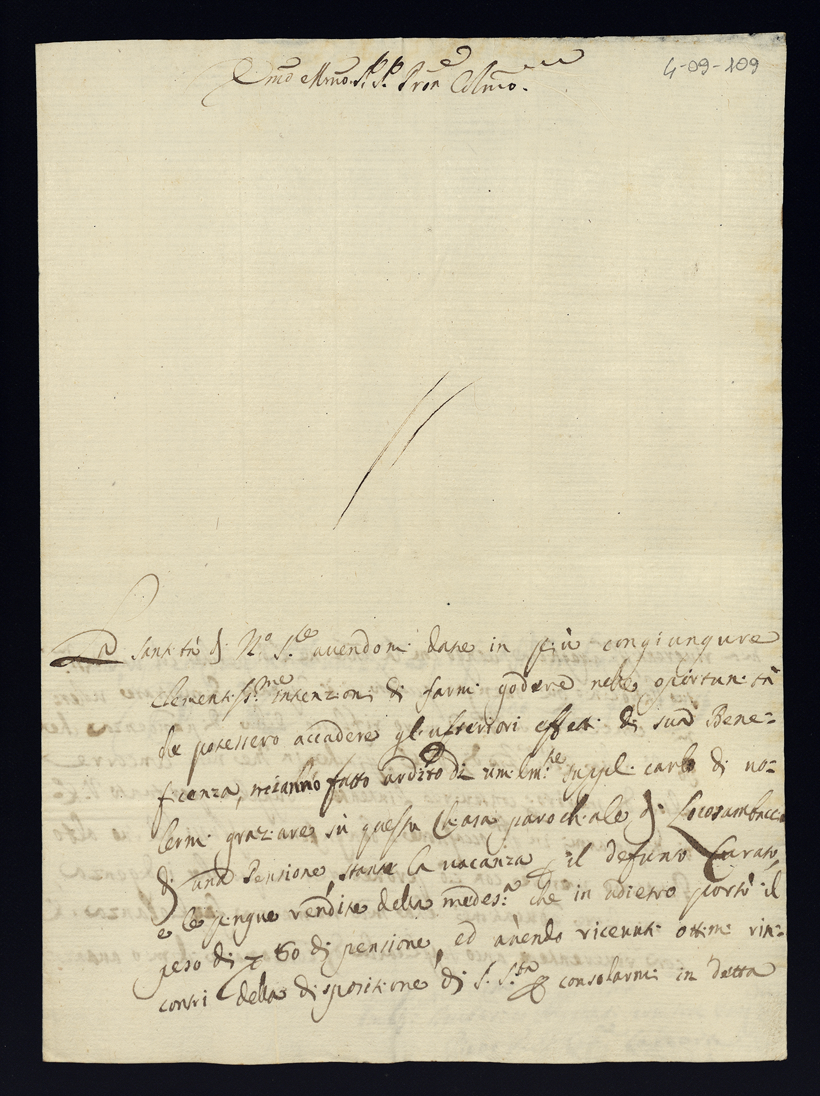 4-09-109
Em̃o e Rm̃o Sig.r Sig.r Pron Colm̃o
La Santità di N.o S.re avendomi date in più congiunture
Clementiss.me intenzioni di farmi godere nelle oportunità
che potessero accadere gl'ulteriori effetti di sua Bene=
ficenza, mi hanno fatto ardito di umilm.te supplicarlo di vo=
lermi graziare sù questa Chiesa parochiale di
di una Pensione, stante la vacanza p il defunto Curato,
e le pingue rendite della medes.a che in adietro portò il
peso di 60 di pensione, ed avendo ricevuti ottimi rin=
contri della disposizione di S. S.tà p consolarmi in detta